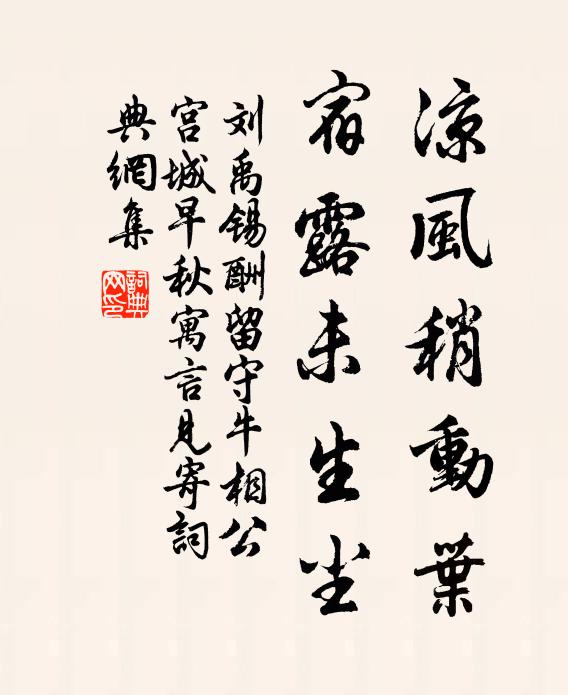 涼風稍動葉
宿露未生尘
刘禹锡酬留守牛相公
宮城早秋寓言見寄詞
典網集
詞典
网印